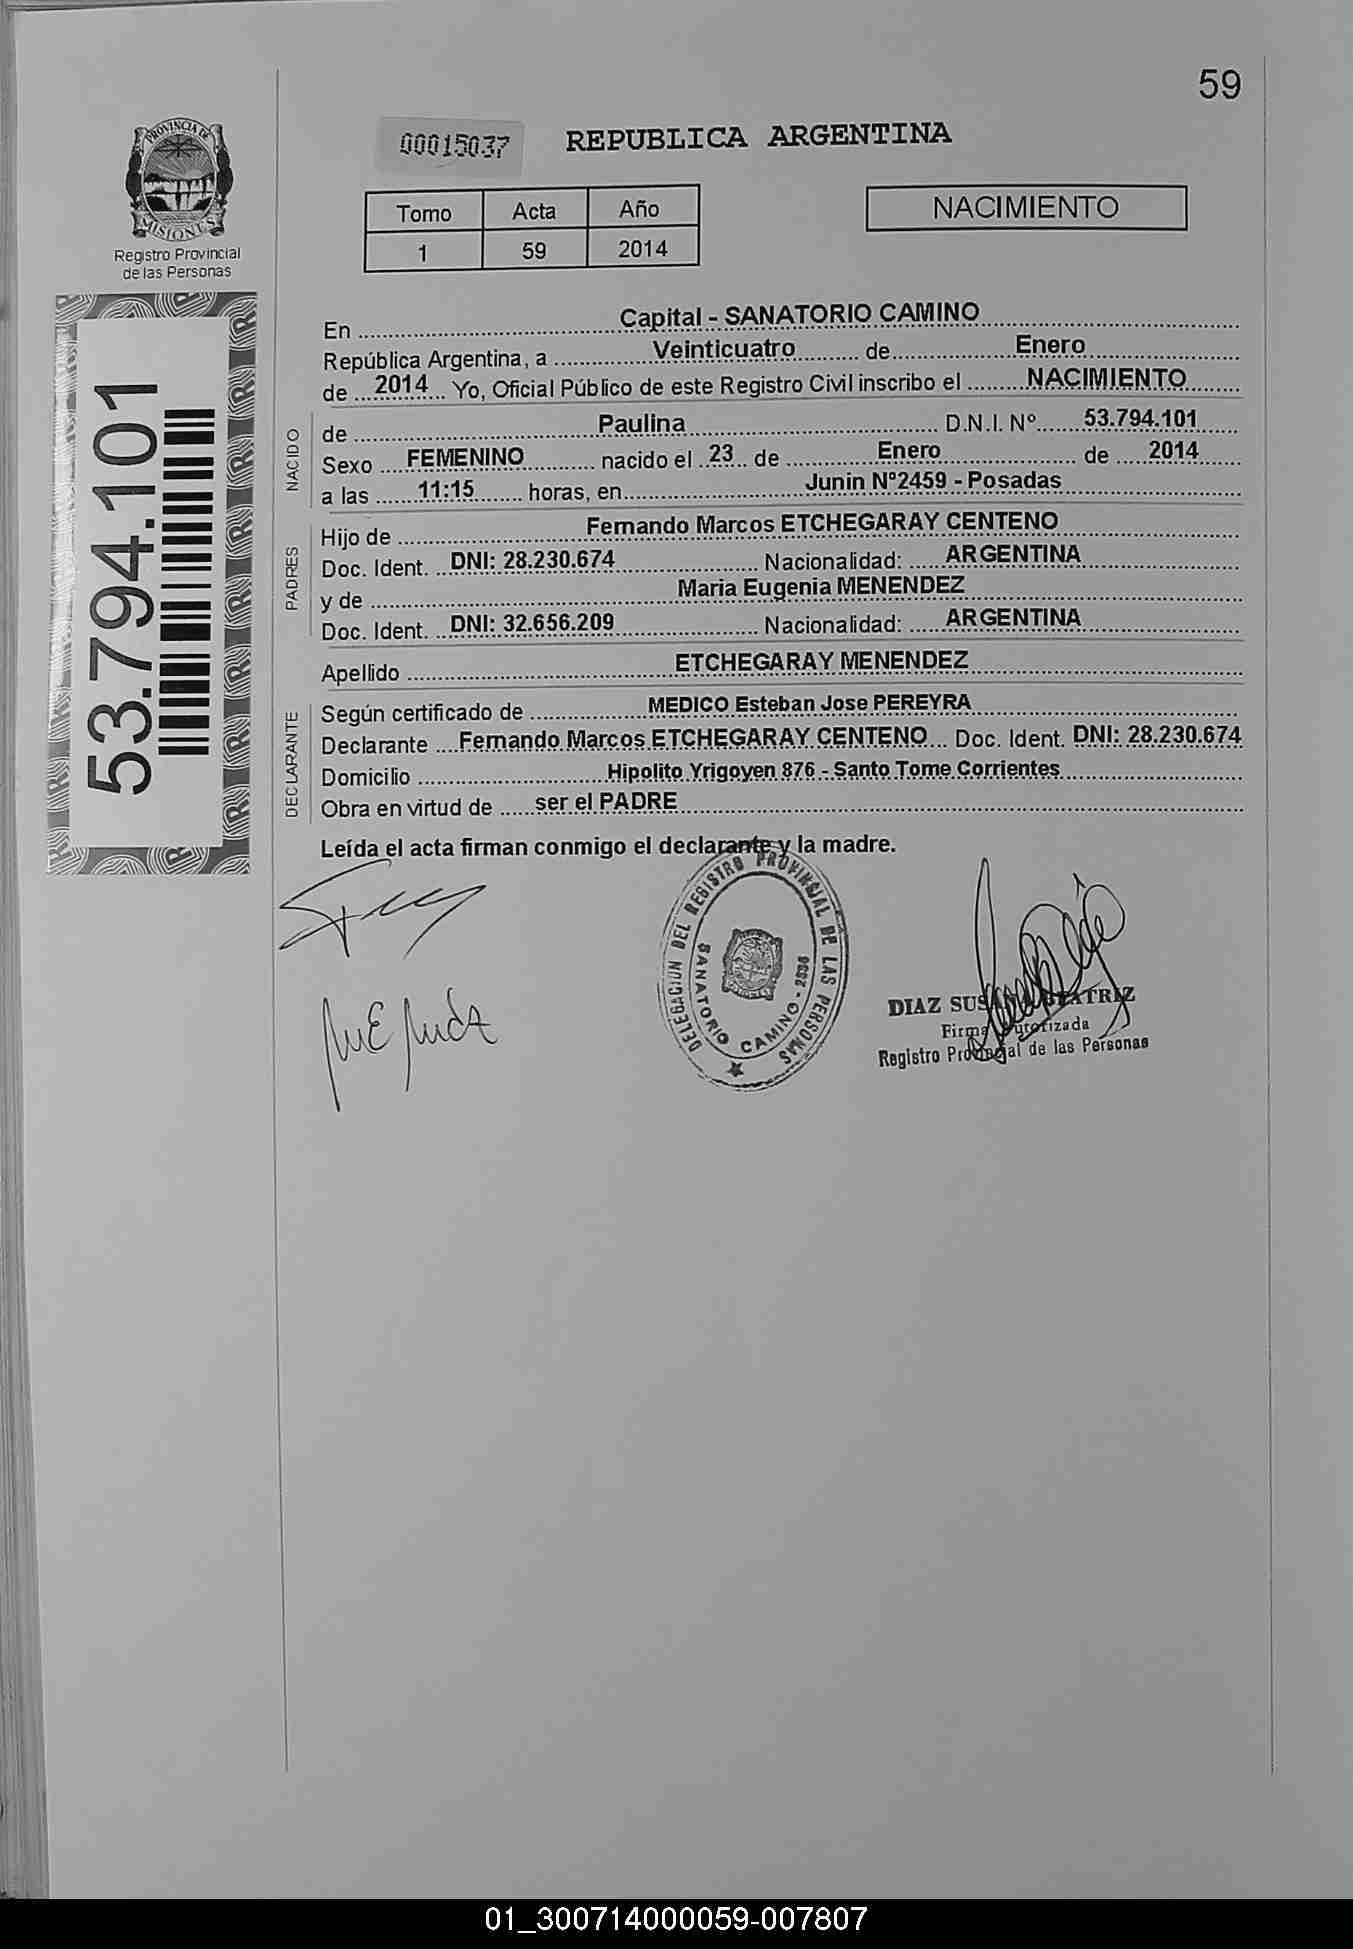 59
PROVINCIA DE
MISIONES
Registro Provincial
de las Personas
00015037
REPUBLICA ARGENTINA
Tomo Acta Año
1 59 2014
NACIMIENTO
53.794.101
En Capital - SANATORIO CAMINO
República Argentina, a Veinticuatro de Enero
de 2014 Yo, Oficial Público de este Registro Civil inscribo el NACIMIENTO
NACIDO
de Paulina D.N.I. Nº 53.794.101
Sexo FEMENINO nacido el 23 de Enero de 2014
a las 11:15 horas, en Junin Nº2459 - Posadas
PADRES
Hijo de Fernando Marcos ETCHEGARAY CENTENO
Doc. Ident. DNI: 28.230.674 Nacionalidad: ARGENTINA
y de Maria Eugenia MENENDEZ
Doc. Ident. DNI: 32.656.209 Nacionalidad: ARGENTINA
Apellido ETCHEGARAY MENENDEZ
DECLARANTE
Según certificado de MEDICO Esteban Jose PEREYRA
Declarante Fernando Marcos ETCHEGARAY CENTENO Doc. Ident. DNI: 28.230.674
Domicilio Hipolito Yrigoyen 876 - Santo Tome Corrientes
Obra en virtud de ser el PADRE
Leída el acta firman conmigo el declarante y la madre.
DELEGACION DEL REGISTRO PROVINCIAL DE LAS PERSONAS
SANATORIO CAMINO - 2836
DIAZ SUSANA BEATRIZ
Firma Autorizada
Registro Provincial de las Personas
01_300714000059-007807